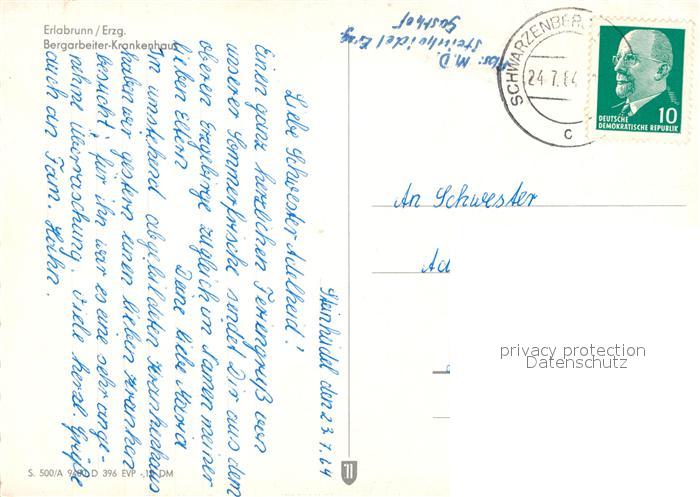 Erlabrunn / Erzg.
Bergarbeiter-Krankenhaus
Steinheidel den 23.7.64
Liebe Schwester Adelheid!
Einen ganz herzlichen Feriengruß von
unserer Sommerfrische sendet Dir aus dem
oberen Erzgebirge zugleich im Namen meiner
lieben Eltern Deine liebe Maria
Im umstehend abgebildeten Krankenhaus
haben wir gestern einen lieben Kranken
besucht, für ihn war es eine sehr ange-
nehme Überraschung. Viele herzl. Grüße
auch an Fam. Hahn.
M. D.
Steinheidel Erzg
Gasthof
SCHWARZENBER
24.7.64
c
DEUTSCHE
DEMOKRATISCHE REPUBLIK
10
An Schwester
Ad
privacy protection
Datenschutz
S. 500/A D 396 EVP DM